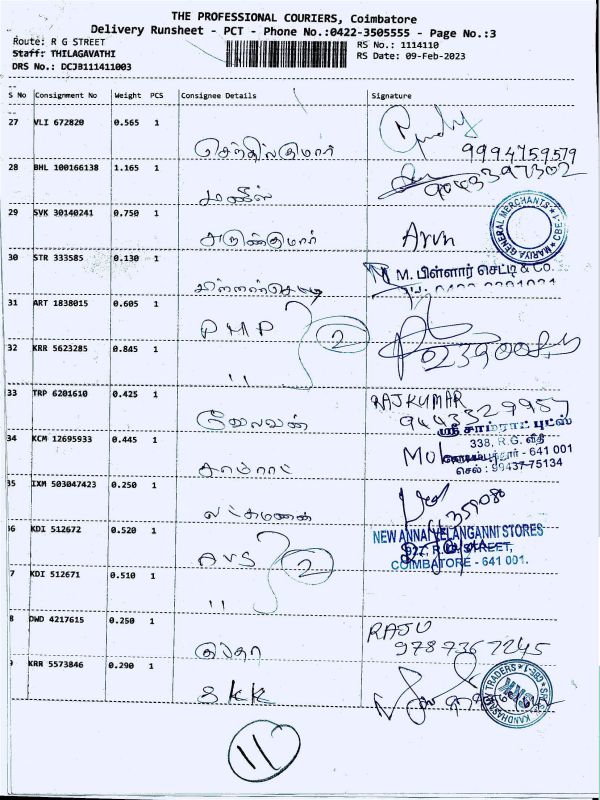 THE PROFESSIONAL COURIERS, Coimbatore
Delivery Runsheet - PCT - Phone No.:0422-3505555 - Page No.:3
Route: R G STREET
RS No.: 1114110
Staff: THILAGAVATHI
RS Date: 09-Feb-2023
DRS No.: DCJB111411003
S No Consignment No Weight PCS Consignee Details Signature
27 VLI 672820 0.565 1
செந்தில்குமார் 9994759579
28 BHL 100166138 1.165 1
மணீஸ்
29 SVK 30140241 0.750 1
அருண்குமார் Arun
MARIYA GENERAL MERCHANTS
30 STR 333585 0.130 1
M. பிள்ளார் செட்டி & Co.
31 ART 1838015 0.605 1
PMP 2
32 KRR 5623285 0.845 1
"
33 TRP 6201610 0.425 1
RAJKUMAR
ஸ்ரீ சாம்ராட் புட்ஸ்
34 KCM 12695933 0.445 1
338, R.G. வீதி
கோயம்புத்தூர் - 641 001
செல் : 99437-75134
சாம்ராட்
35 IXM 503047423 0.250 1
லட்சுமணன்
36 KDI 512672 0.520 1
NEW ANNAI VELANGANNI STORES
927, R.G. STREET,
COIMBATORE - 641 001.
AVS 2
7 KDI 512671 0.510 1
"
8 DWD 4217615 0.250 1
RAJU
9787367245
9 KRR 5573846 0.290 1
SKK
KANDHASAMY TRADERS
11